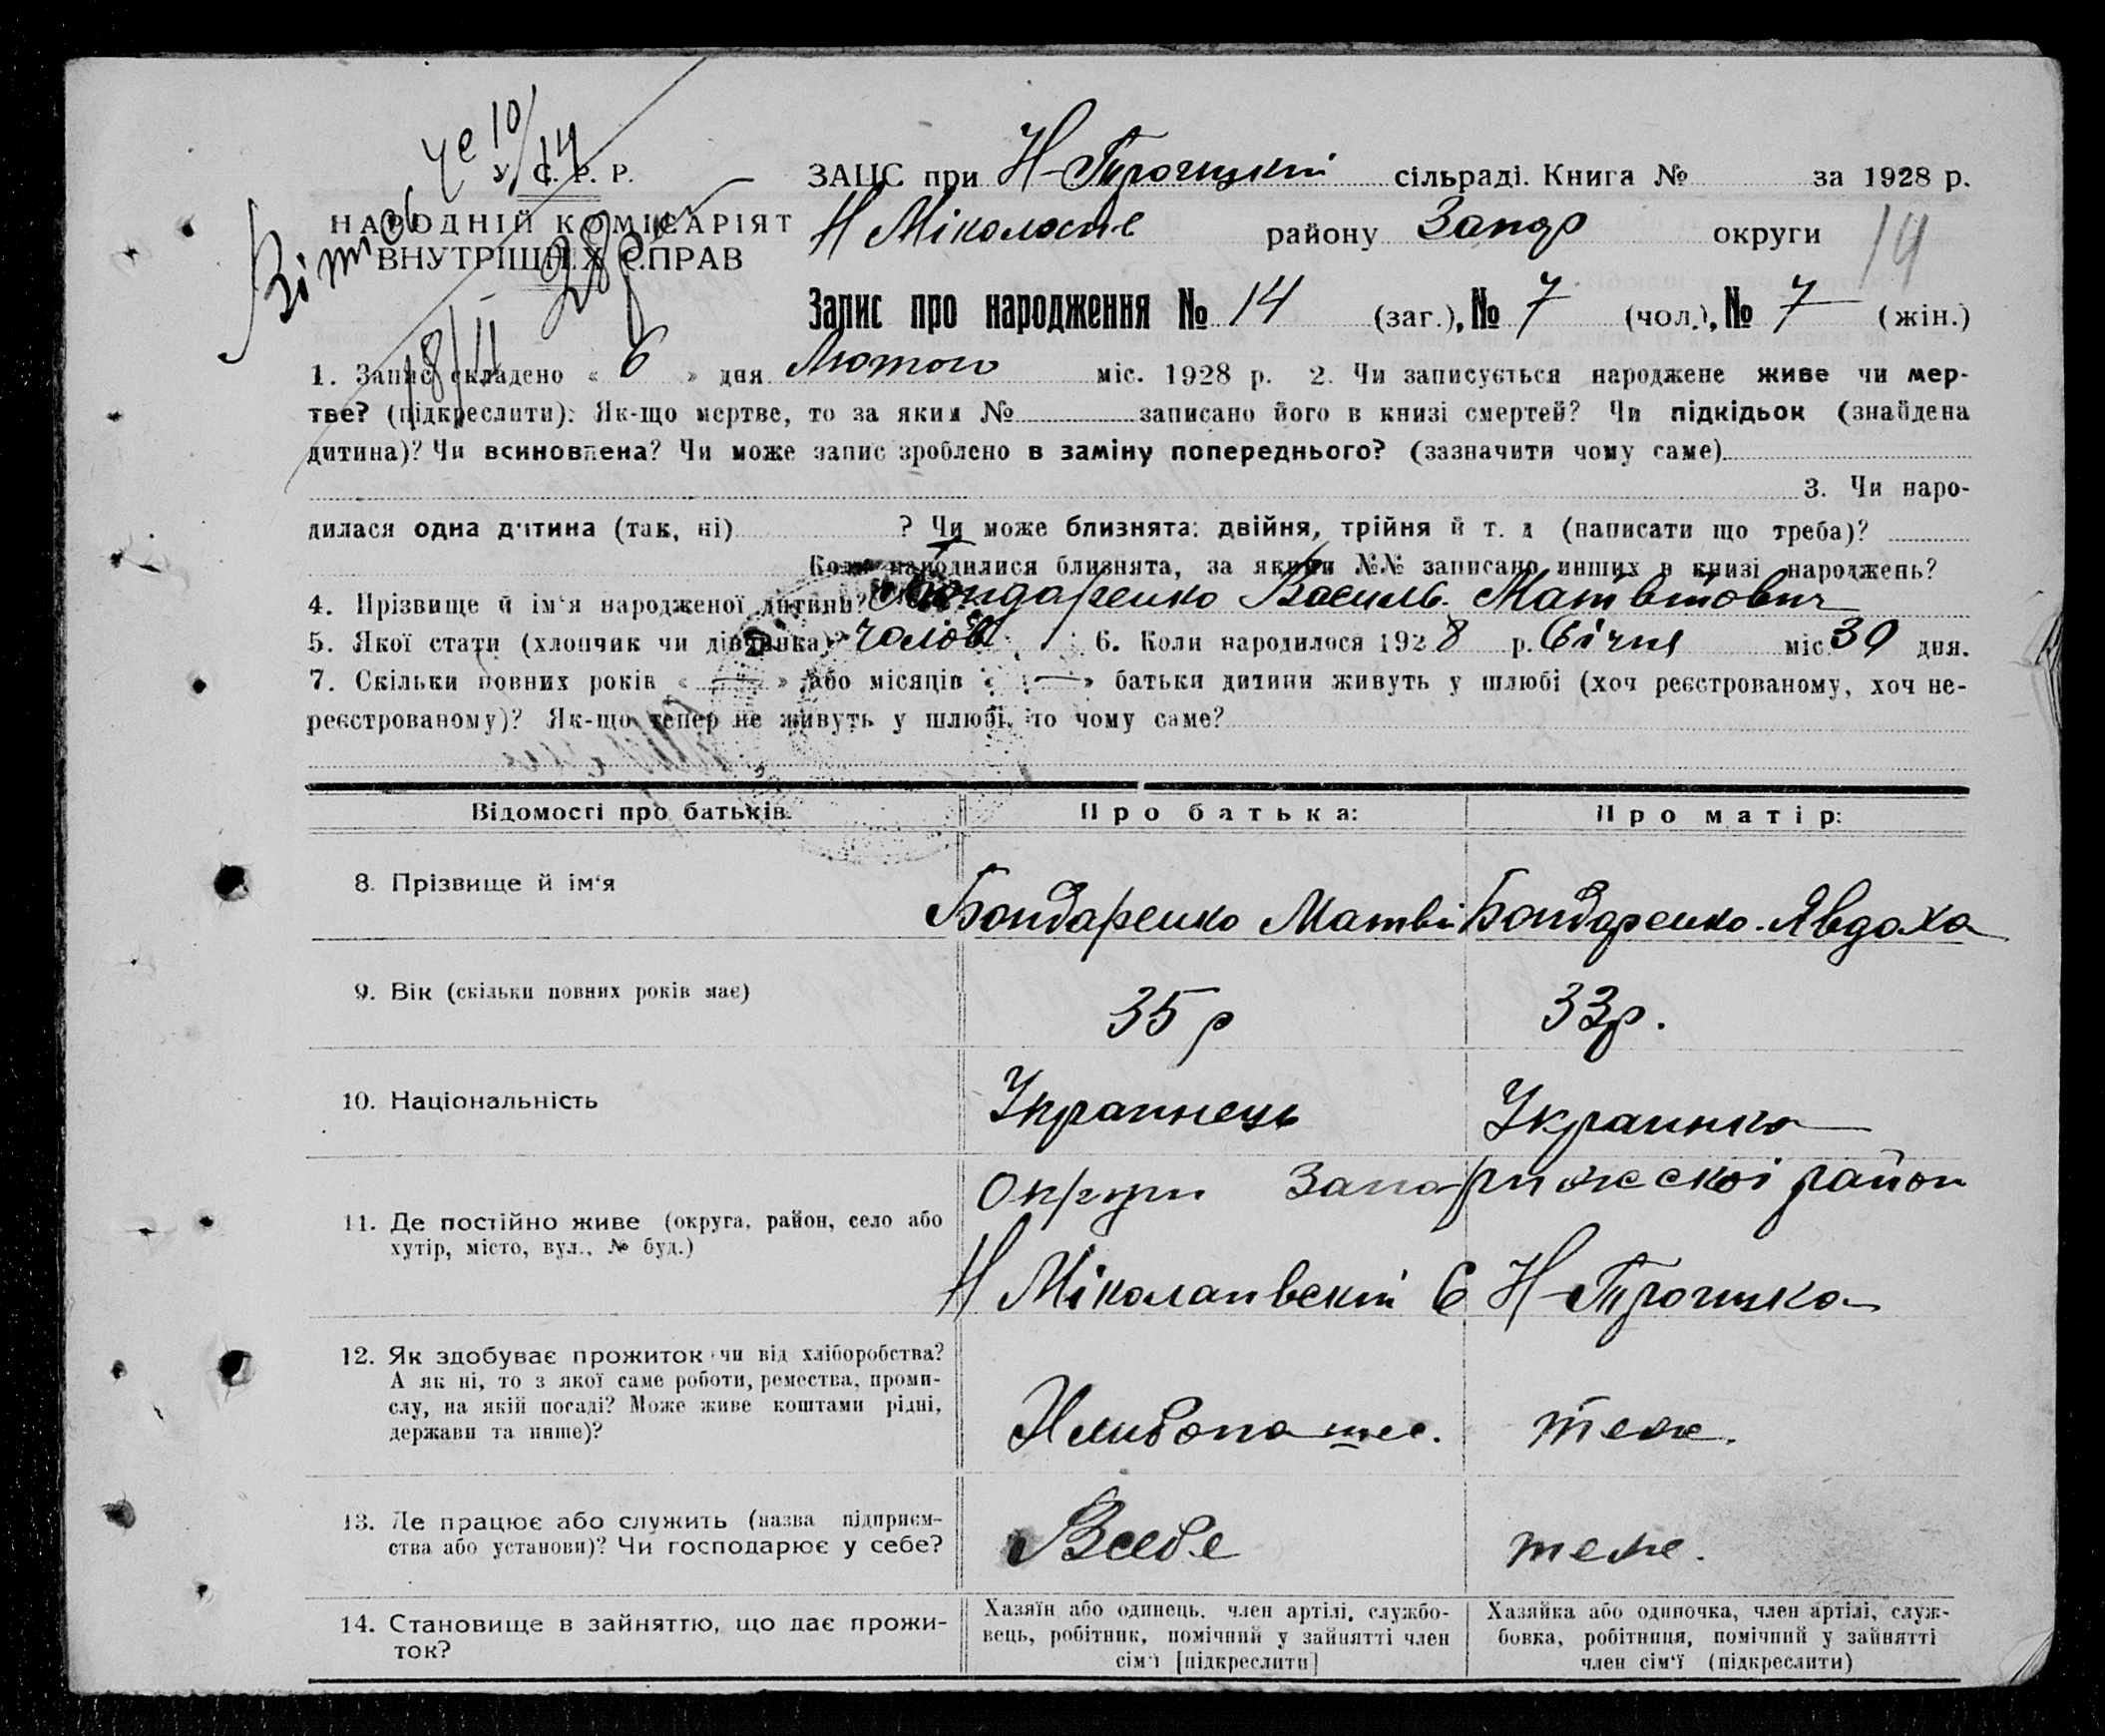 Че 10/14
У. С. Р. Р.
НАРОДНІЙ КОМІСАРІЯТ
ВНУТРІШНІХ СПРАВ
ЗАЦС при Н-Троицкій сільраді. Книга № за 1928 р.
Н Міколаєвс району Запор округи
14
Запис про народження № 14 (заг.), № 7 (чол.), № 7 (жін.)
1. Запис складено « 6 » дня Лютого міс. 1928 р. 2. Чи записується народжене живе чи мер-
тве? (підкреслити): Як-що мертве, то за яким № записано його в книзі смертей? Чи підкідьок (знайдена
дитина)? Чи всиновлена? Чи може запис зроблено в заміну попереднього? (зазначити чому саме)
3. Чи наро-
дилася одна дитина (так, ні) ? Чи може близнята: двійня, трійня й т. д (написати що треба)?
Коли народилися близнята, за якими №№ записано инших в книзі народжень?
4. Прізвище й ім'я народженої дитини? Бондаренко Василь Матвітович
5. Якої стати (хлопчик чи дівчинка)? чолов 6. Коли народилося 1928 р. Січня міс. 30 дня.
7. Скільки повних років « — » або місяців « — » батьки дитини живуть у шлюбі (хоч реєстрованому, хоч не-
реєстрованому)? Як-що тепер не живуть у шлюбі, то чому саме?
Відомості про батьків. Про батька: Про матір:
8. Прізвище й ім'я Бондаренко Матві Бондаренко Явдоха
9. Вік (скільки повних років має) 35 р 33р.
10. Національність Украинець Украинка
11. Де постійно живе (округа, район, село або
хутір, місто, вул., № буд.)
Округи Запорижскоі район
Н Міколаивскій С Н-Троицка
12. Як здобуває прожиток чи від хліборобства?
А як ні, то з якої саме роботи, ремества, проми-
слу, на якій посаді? Може живе коштами рідні,
держави та инше)?
теж.
13. Де працює або служить (назва підприєм-
ства або установи)? Чи господарює у себе?
Всебе теже.
14. Становище в зайняттю, що дає прожи-
ток?
Хазяїн або одинець, член артілі, службо-
вець, робітник, помічний у зайнятті член
сім'ї [підкреслити]
Хазяйка або одиночка, член артілі, служ-
бовка, робітниця, помічний у зайнятті
член сім'ї (підкреслити)